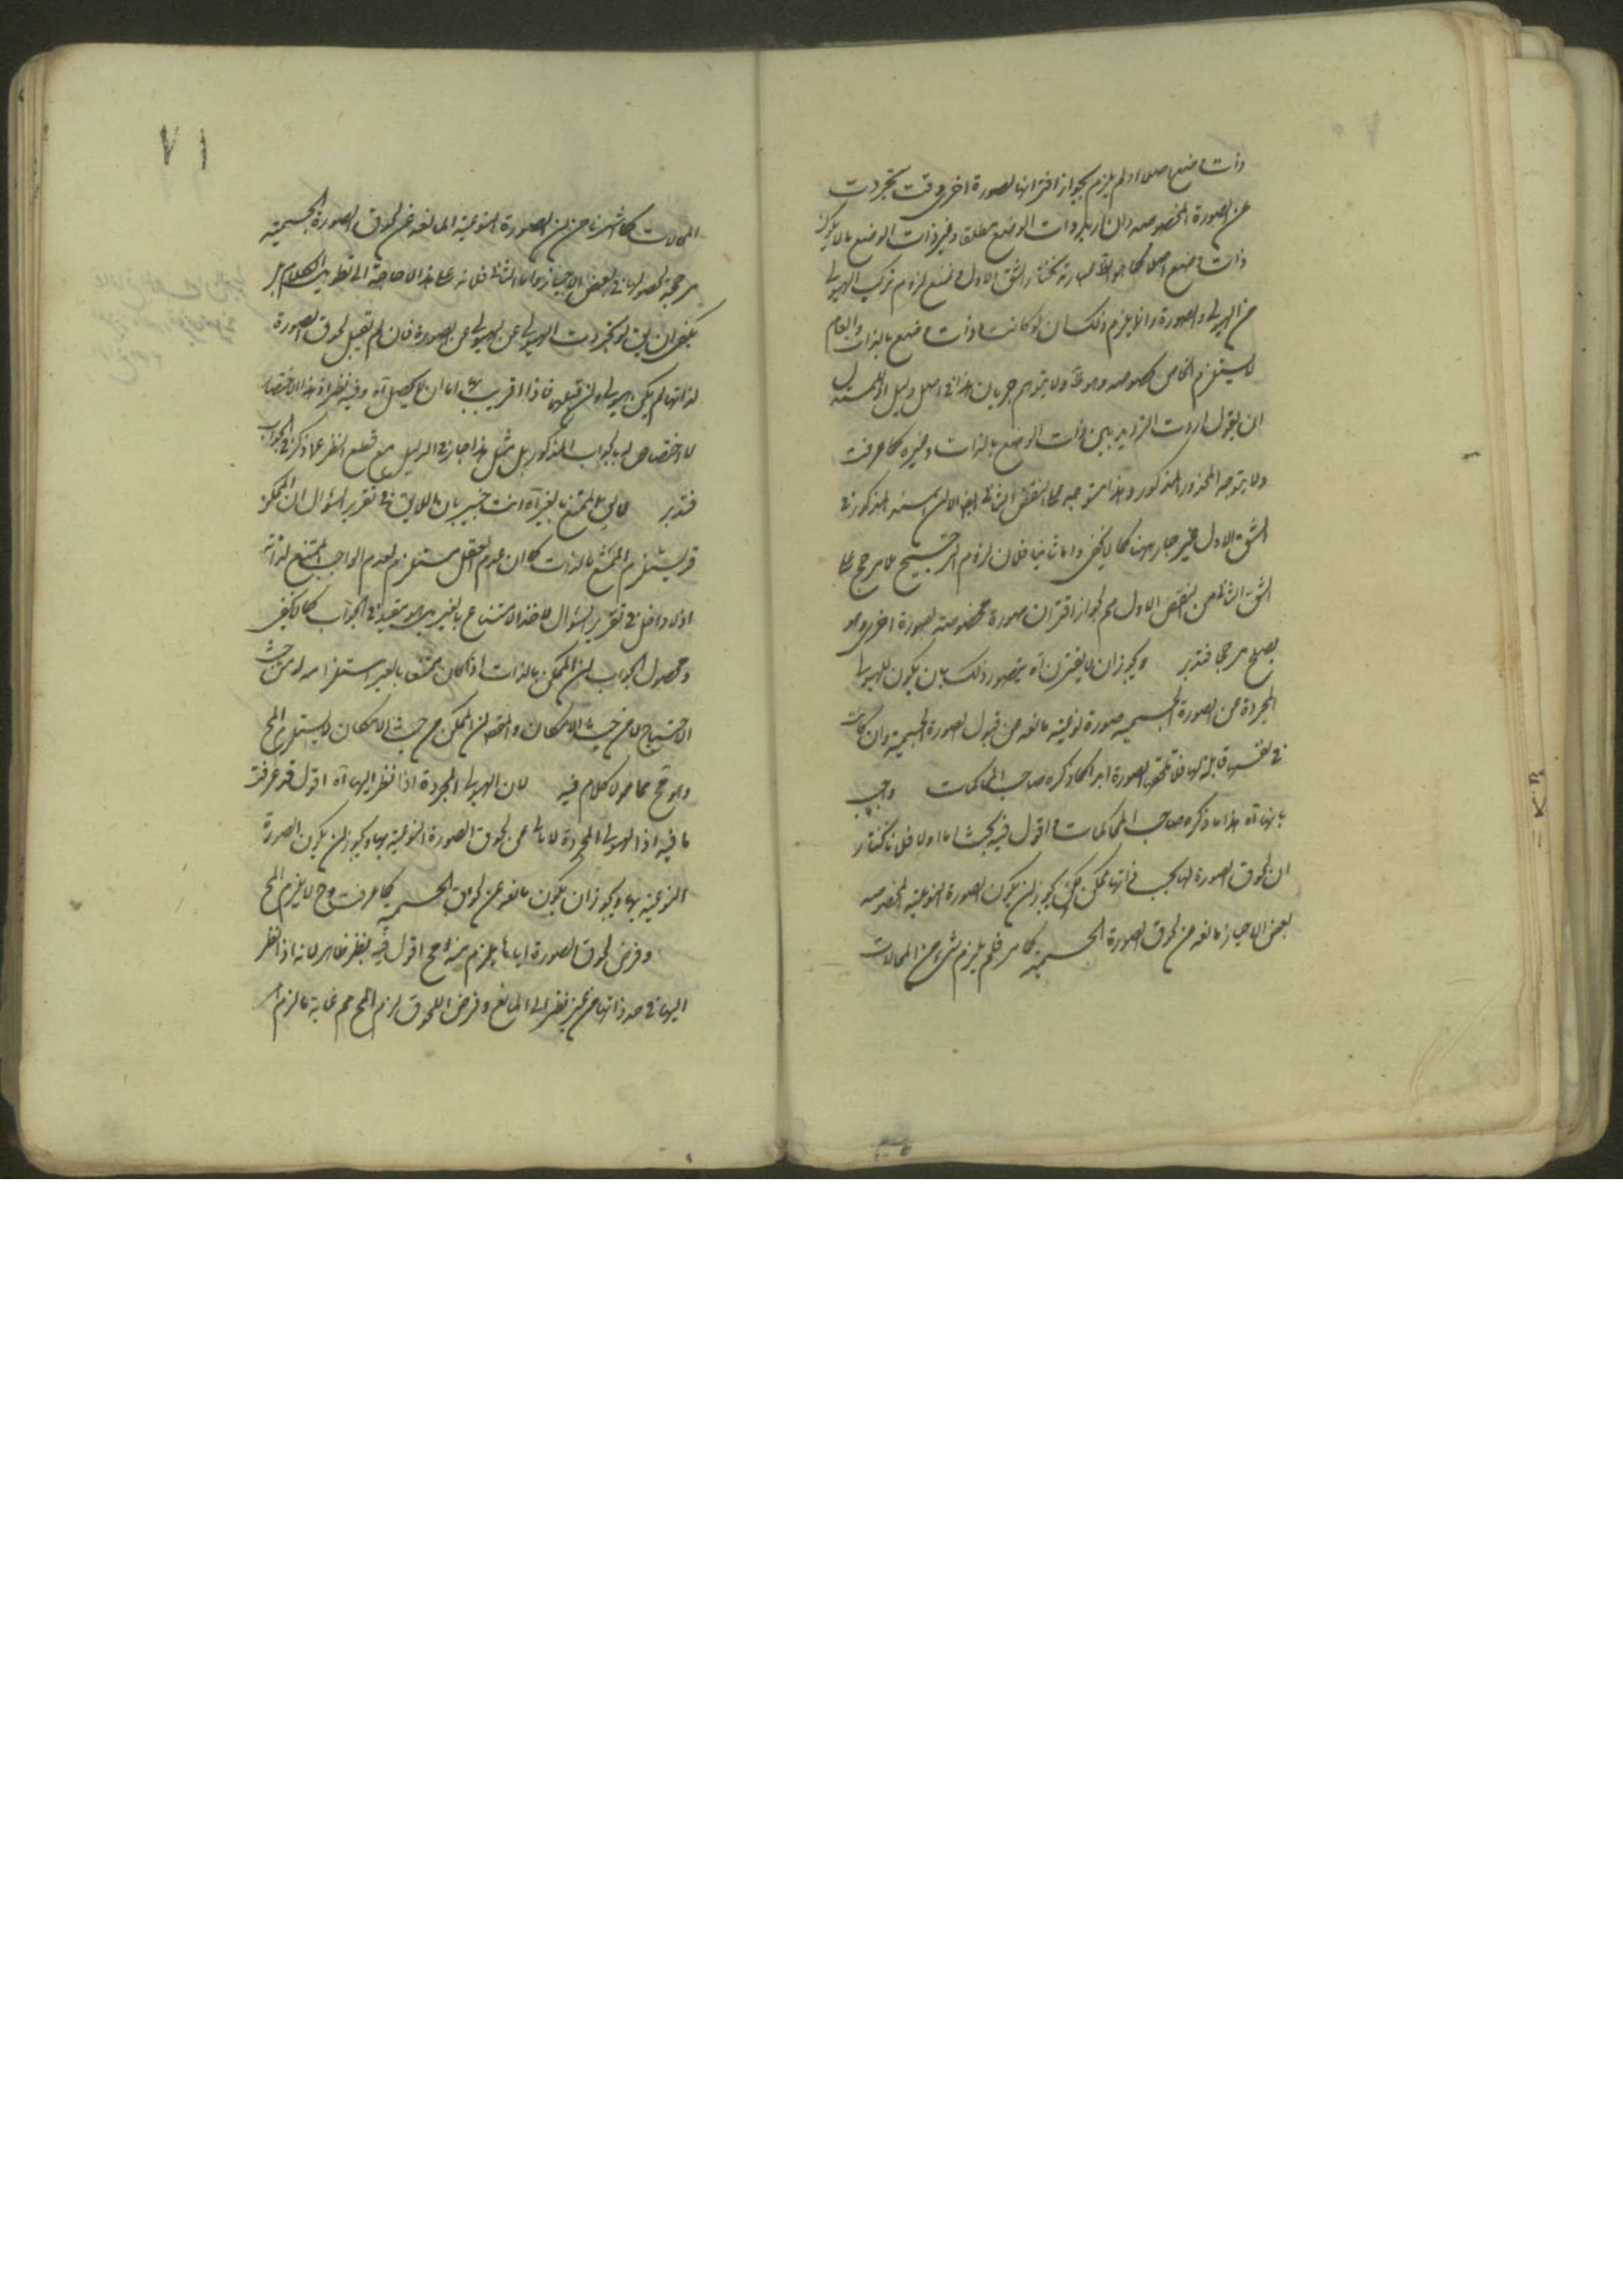 ذات وضع اصلا ولم يلزم بجواز اقترانها بصورة اخرى وقت تجردت
عن الصورة المخصوصه وان اريد بذات الوضع مطلقا وغير ذات الوضع ما لا يكون
ذات وضع اصلا كما هو الظ عبارته نختار الشق الاول ونمنع لزوم تركب الهيولى
من الهيولى والصورة وانما يلزم ذلك ان لو كانت ذات وضع بالذات والعام
لا يستلزم الخاص بخصوصه وهو ظ ولا يتوهم جريان هذا في اصل دليل
ان يقول اردت الترديد بين ذات الوضع بالذات وغيره كما عرفت
ولا يتوجه المحذور المذكور وهذا متوجه على النقض الثاني ايضا الا ان السند المذكور في
الشق الاول غير جار ههنا كما لا يخفى واما ثانيا فلان لزوم الترجيح بلا مرجح على
الشق الثاني من النقض الاول مم لجواز اقتران صورة مخصوصة بصورة اخرى وهو
يصلح مرجحا فتدبر ويجوز ان لا يقترن آه يتصور ذلك بان يكون للهيولى
المجردة عن الصورة الجسمية صورة نوعية مانعه من قبول الصورة الجسمية وان كانت
في نفسها قابلة لها فلا تلحق الصورة ابدا كما ذكره صاحب المحاكمات واجيب
بانها آه هذا ما ذكره صاحب المحاكمات واقول فيه بحث اما اولا فلانا نختار
ان لحوق الصورة لها بحسب ذاتها ممكن لكن يجوز ان يكون الصورة النوعية المخصوصه
بعض الاحياز مانعه من لحوق الصورة الجسمية كما مر فلم يلزم شئ من المحالات
٧١
المحالات كما اشرنا من ان الصورة النوعية المانعه عن لحوق الصورة الجسمية
مرجحة لحصولها في بعض الاحياز واما ثانيا فلانه على هذا لا حاجة الى تطويل الكلام بل
يكفى ان يق لو تجردت الهيولى عن الصورة فان لم تقبل لحوق الصورة
لذاتها لم يكن هيولى وان قبلها فاذا اقترنت بها اما ان لا يحصل آه وفيه نظر اذ هذا الاختصار
لا اختصاص له بالجواب المذكور بل مثل هذا جار في الدليل مع قطع النظر عما ذكر في الجواب
فتدبر لا يق الممتنع بالغير آه انت خبير بان اللايق في تقرير السؤال ان الممكن
قد يستلزم الممتنع بالذات كما ان عدم العقل مستلزم لعدم الواجب الممتنع لذاته
اذ لا دخل في تقرير السؤال لاخذ الامتناع بالغير بل هو يفيد في الجواب كما لا يخفى
ومحصول الجواب ان الممكن بالذات اذا كان ممتنعا بالغير استلزامه له من حيث
الامتناع لا من حيث الامكان والمتصف ان الممكن من حيث الامكان لا يستلزم المح
وهو مح مما لا كلام فيه لان الهيولى المجردة اذا نظر اليها آه اقول قد عرفت
ما فيه اذ الهيولى المجردة لا تابى عن لحوق الصورة النوعية بها ويجوز ان يكون الصورة
النوعية بها ويجوز ان يكون مانعه عن لحوق الجسمية كما عرفت وح لا يلزم المح
وفرض لحوق الصورة اياها يلزم منه مح اقول فيه نظر ظاهر لانه اذا نظر
اليها في حد ذاتها من غير نظر الى المانع وفرض اللحوق لزم المح مم غاية ما لزم